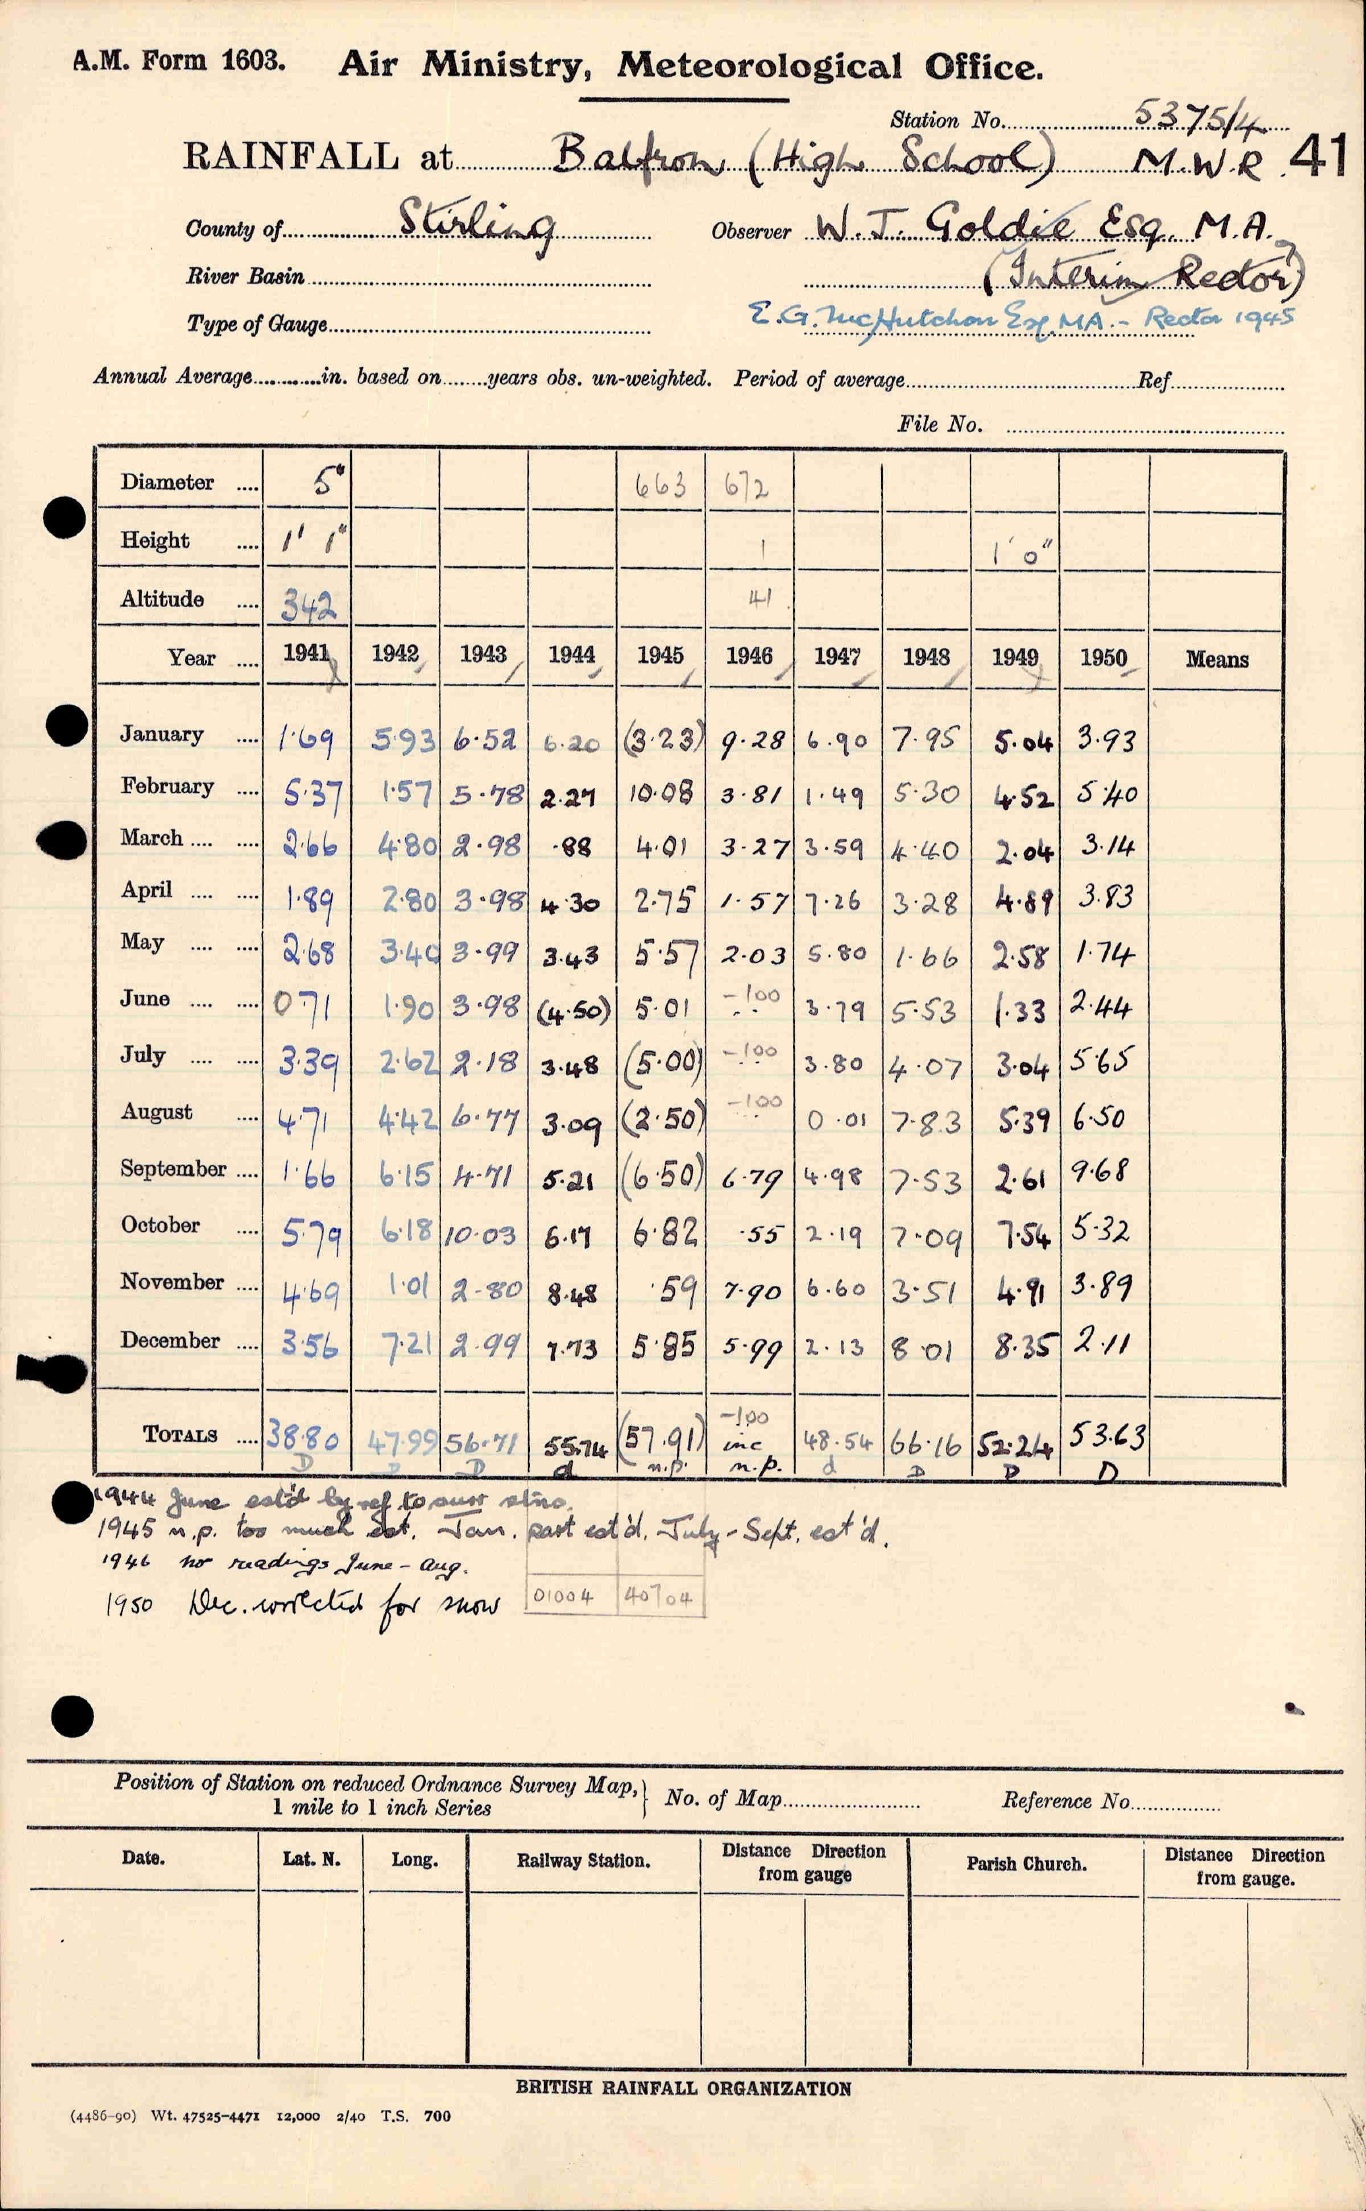 A.M. Form 1603. Air Ministry, Meteorological Office.
Station No. 5375/4
RAINFALL at Balfron (High School) M.W.R. 41
County of Stirling Observer W. J. Goldie Esq. M.A.
River Basin (Interim Rector)
Type of Gauge E.G. McHutchon Esq. MA. - Rector 1945
Annual Average in. based on years obs. un-weighted. Period of average Ref
File No.
Diameter 5" 663 672
Height 1' 1" 1 1' 0"
Altitude 342 41
Year 1941 1942 1943 1944 1945 1946 1947 1948 1949 1950 Means
January 1.69 5.93 6.52 6.20 (3.23) 9.28 6.90 7.95 5.04 3.93
February 5.37 1.57 5.78 2.27 10.08 3.81 1.49 5.30 4.52 5.40
March 2.66 4.80 2.98 .88 4.01 3.27 3.59 4.40 2.04 3.14
April 1.89 2.80 3.98 4.30 2.75 1.57 7.26 3.28 4.89 3.83
May 2.68 3.40 3.99 3.43 5.57 2.03 5.80 1.66 2.58 1.74
June 0.71 1.90 3.98 (4.50) 5.01 -100 3.79 5.53 1.33 2.44
July 3.39 2.62 2.18 3.48 (5.00) -100 3.80 4.07 3.04 5.65
August 4.71 4.42 6.77 3.09 (2.50) -100 0.01 7.83 5.39 6.50
September 1.66 6.15 4.71 5.21 (6.50) 6.79 4.98 7.53 2.61 9.68
October 5.79 6.18 10.03 6.17 6.82 .55 2.19 7.09 7.54 5.32
November 4.69 1.01 2.80 8.48 .59 7.90 6.60 3.51 4.91 3.89
December 3.56 7.21 2.99 7.73 5.85 5.99 2.13 8.01 8.35 2.11
TOTALS 38.80 47.99 56.71 55.74 (57.91) -100 inc 48.54 66.16 52.24 53.63
D D D d n.p. n.p. d D D D
1944 June est'd by ref to surr stns.
1945 n.p. too much est. Jan. part est'd. July - Sept. est'd.
1946 no readings June - Aug.
1950 Dec. corrected for snow 01004 40704
Position of Station on reduced Ordnance Survey Map, No. of Map Reference No.
1 mile to 1 inch Series
Date. Lat. N. Long. Railway Station. Distance Direction from gauge Parish Church. Distance Direction from gauge.
BRITISH RAINFALL ORGANIZATION
(4486-90) Wt. 47525-4471 12,000 2/40 T.S. 700